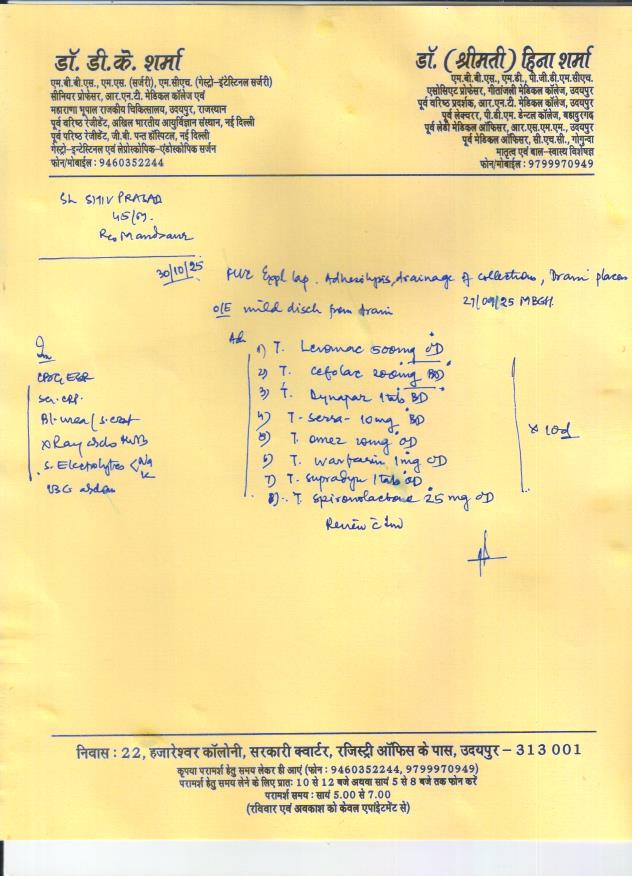 डॉ. डी.के. शर्मा
एम.बी.बी.एस., एम.एस. (सर्जरी), एम.सीएच. (गेस्ट्रो-इंटेस्टिनल सर्जरी)
सीनियर प्रोफेसर, आर.एन.टी. मेडिकल कॉलेज एवं
महाराणा भूपाल राजकीय चिकित्सालय, उदयपुर, राजस्थान
पूर्व वरिष्ठ रेजीडेंट, अखिल भारतीय आयुर्विज्ञान संस्थान, नई दिल्ली
पूर्व वरिष्ठ रेजीडेंट, जी.बी. पन्त हॉस्पिटल, नई दिल्ली
गेस्ट्रो-इन्टेस्टिनल एवं लेप्रोस्कोपिक-एंडोस्कोपिक सर्जन
फोन/मोबाईल : 9460352244
डॉ. (श्रीमती) हिना शर्मा
एम.बी.बी.एस., एम.डी., पी.जी.डी.एम.सीएच.
एसोसिएट प्रोफेसर, गीतांजली मेडिकल कॉलेज, उदयपुर
पूर्व वरिष्ठ प्रदर्शक, आर.एन.टी. मेडिकल कॉलेज, उदयपुर
पूर्व लेक्चरर, पी.डी.एम. डेन्टल कॉलेज, बहादुरगढ़
पूर्व लेडी मेडिकल ऑफिसर, आर.एस.एम.एम., उदयपुर
पूर्व मेडिकल ऑफिसर, सी.एच.सी., गोगुन्दा
मातृत्व एवं बाल-स्वास्थ्य विशेषज्ञ
फोन/मोबाईल : 9799970949
Sh SHIV PRASAD
45/M.
R/o Mandsaur
30/10/25
FUC Expl lap. Adhesiolysis, drainage of collections, Drain placed
27/09/25 MBGH.
O/E mild disch from drain
Adv
1) T. Levomac 500mg OD
2) T. Cefolac 200mg BD
3) T. Dynapar 1tab BD
4) T- Serra- 10mg BD
5) T. Omez 20mg OD
6) T. Warfarin 1mg OD
7) T- Supradyn 1tab OD
8) T. Spironolactone 25 mg OD
x 10d
Review c Inv
Inv
CBC, ESR
Ser. CRP
Bl. urea / S. creat
X Ray abdo KUB
S. Electrolytes < Na
K
USG abdom
निवास : 22, हजारेश्वर कॉलोनी, सरकारी क्वार्टर, रजिस्ट्री ऑफिस के पास, उदयपुर – 313 001
कृपया परामर्श हेतु समय लेकर ही आएं (फोन : 9460352244, 9799970949)
परामर्श हेतु समय लेने के लिए प्रातः 10 से 12 बजे अथवा सायं 5 से 8 बजे तक फोन करें
परामर्श समय : सायं 5.00 से 7.00
(रविवार एवं अवकाश को केवल एपाइंटमेंट से)